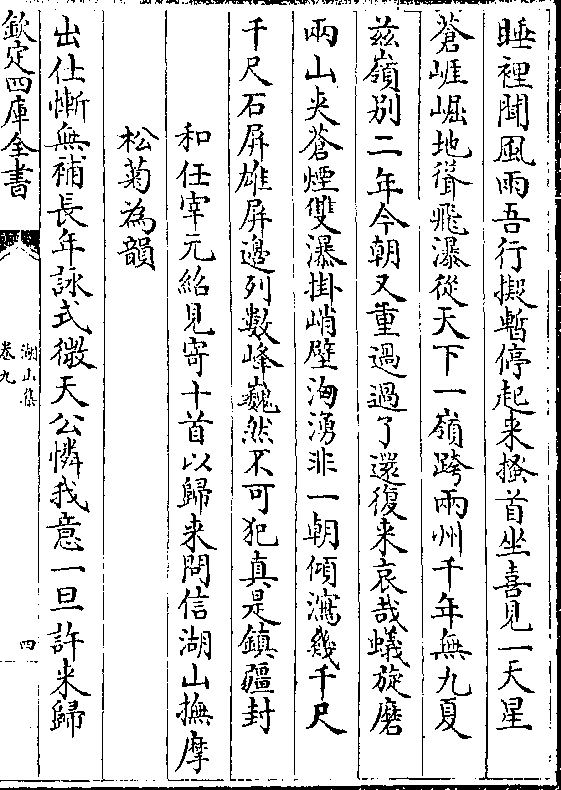 睡裡聞風雨吾行擬暫停起来搔首坐喜見一天星
蒼崕崛地聳飛瀑從天下一嶺跨兩州千年無九夏
兹嶺别二年今朝又重過過了還復来哀哉蟻旋磨
兩山夾蒼煙雙瀑掛峭壁洶湧非一朝傾瀉幾千尺
千尺石屏雄屏邉列數峰巍然不可犯真是鎮疆封
和任宰元紹見寄十首以歸来問信湖山撫摩
松菊為韻
出仕慚無補長年詠式微天公憐我意一旦許来歸
欽定四庫全書
湖山集
卷九
四